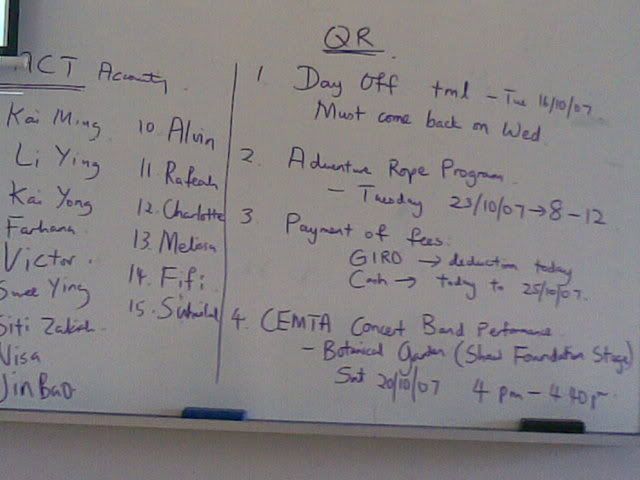 QR
ACT Accounty
Kai Ming
Li Ying
Kai Yong
Farhana
Victor
Swee Ying
Siti
Visa
Jin Bao
10. Alvin
11. Rafeah
12. Charlotte
13. Melissa
14. Fifi
15.
1. Day Off tml - Tue 16/10/07.
Must come back on Wed.
2. Adventure Rope Program
- Tuesday 23/10/07 → 8 - 12
3. Payment of fees:
GIRO → deduction today
Cash → today to 25/10/07.
4. CEMTA Concert Band Performance
- Botanical Garden (Shaw Foundation Stage)
Sat 20/10/07 4 pm - 4.40p